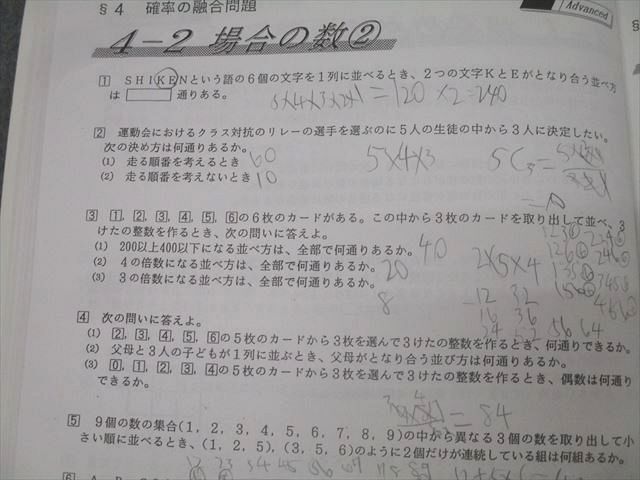 §4 確率の融合問題
Advanced
4-2 場合の数②
1 SHIKENという語の6個の文字を1列に並べるとき、2つの文字KとEがとなり合う並べ方
は 通りある。
5×4×3×2×1=120×2=240
2 運動会におけるクラス対抗のリレーの選手を選ぶのに5人の生徒の中から3人に決定したい。
次の決め方は何通りあるか。
(1) 走る順番を考えるとき 60
(2) 走る順番を考えないとき 10
5×4×3
3 1, 2, 3, 4, 5, 6の6枚のカードがある。この中から3枚のカードを取り出して並べ、3
けたの整数を作るとき、次の問いに答えよ。
(1) 200以上400以下になる並べ方は、全部で何通りあるか。 40
(2) 4の倍数になる並べ方は、全部で何通りあるか。 20
(3) 3の倍数になる並べ方は、全部で何通りあるか。 8
2×5×4
12 32
16 36
24 52 56 64
4 次の問いに答えよ。
(1) 2, 3, 4, 5, 6の5枚のカードから3枚を選んで3けたの整数を作るとき、何通りできるか。
(2) 父母と3人の子どもが1列に並ぶとき、父母がとなり合う並び方は何通りあるか。
(3) 0, 1, 2, 3, 4の5枚のカードから3枚を選んで3けたの整数を作るとき、偶数は何通り
できるか。
= 84
5 9個の数の集合(1, 2, 3, 4, 5, 6, 7, 8, 9)の中から異なる3個の数を取り出して小
さい順に並べるとき、(1, 2, 5), (3, 5, 6)のように2個だけが連続している組は何組あるか。
12 23 34 45 56 67 78 89
6